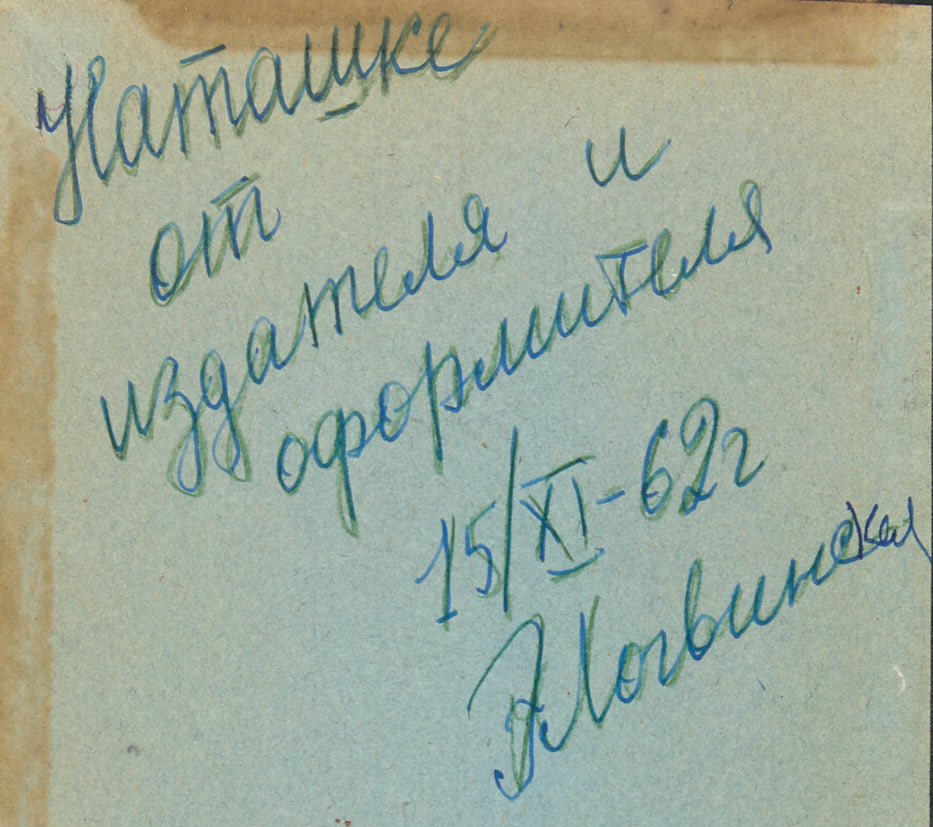 Наташке
от
издателя и
оформителя
15/XI-62г